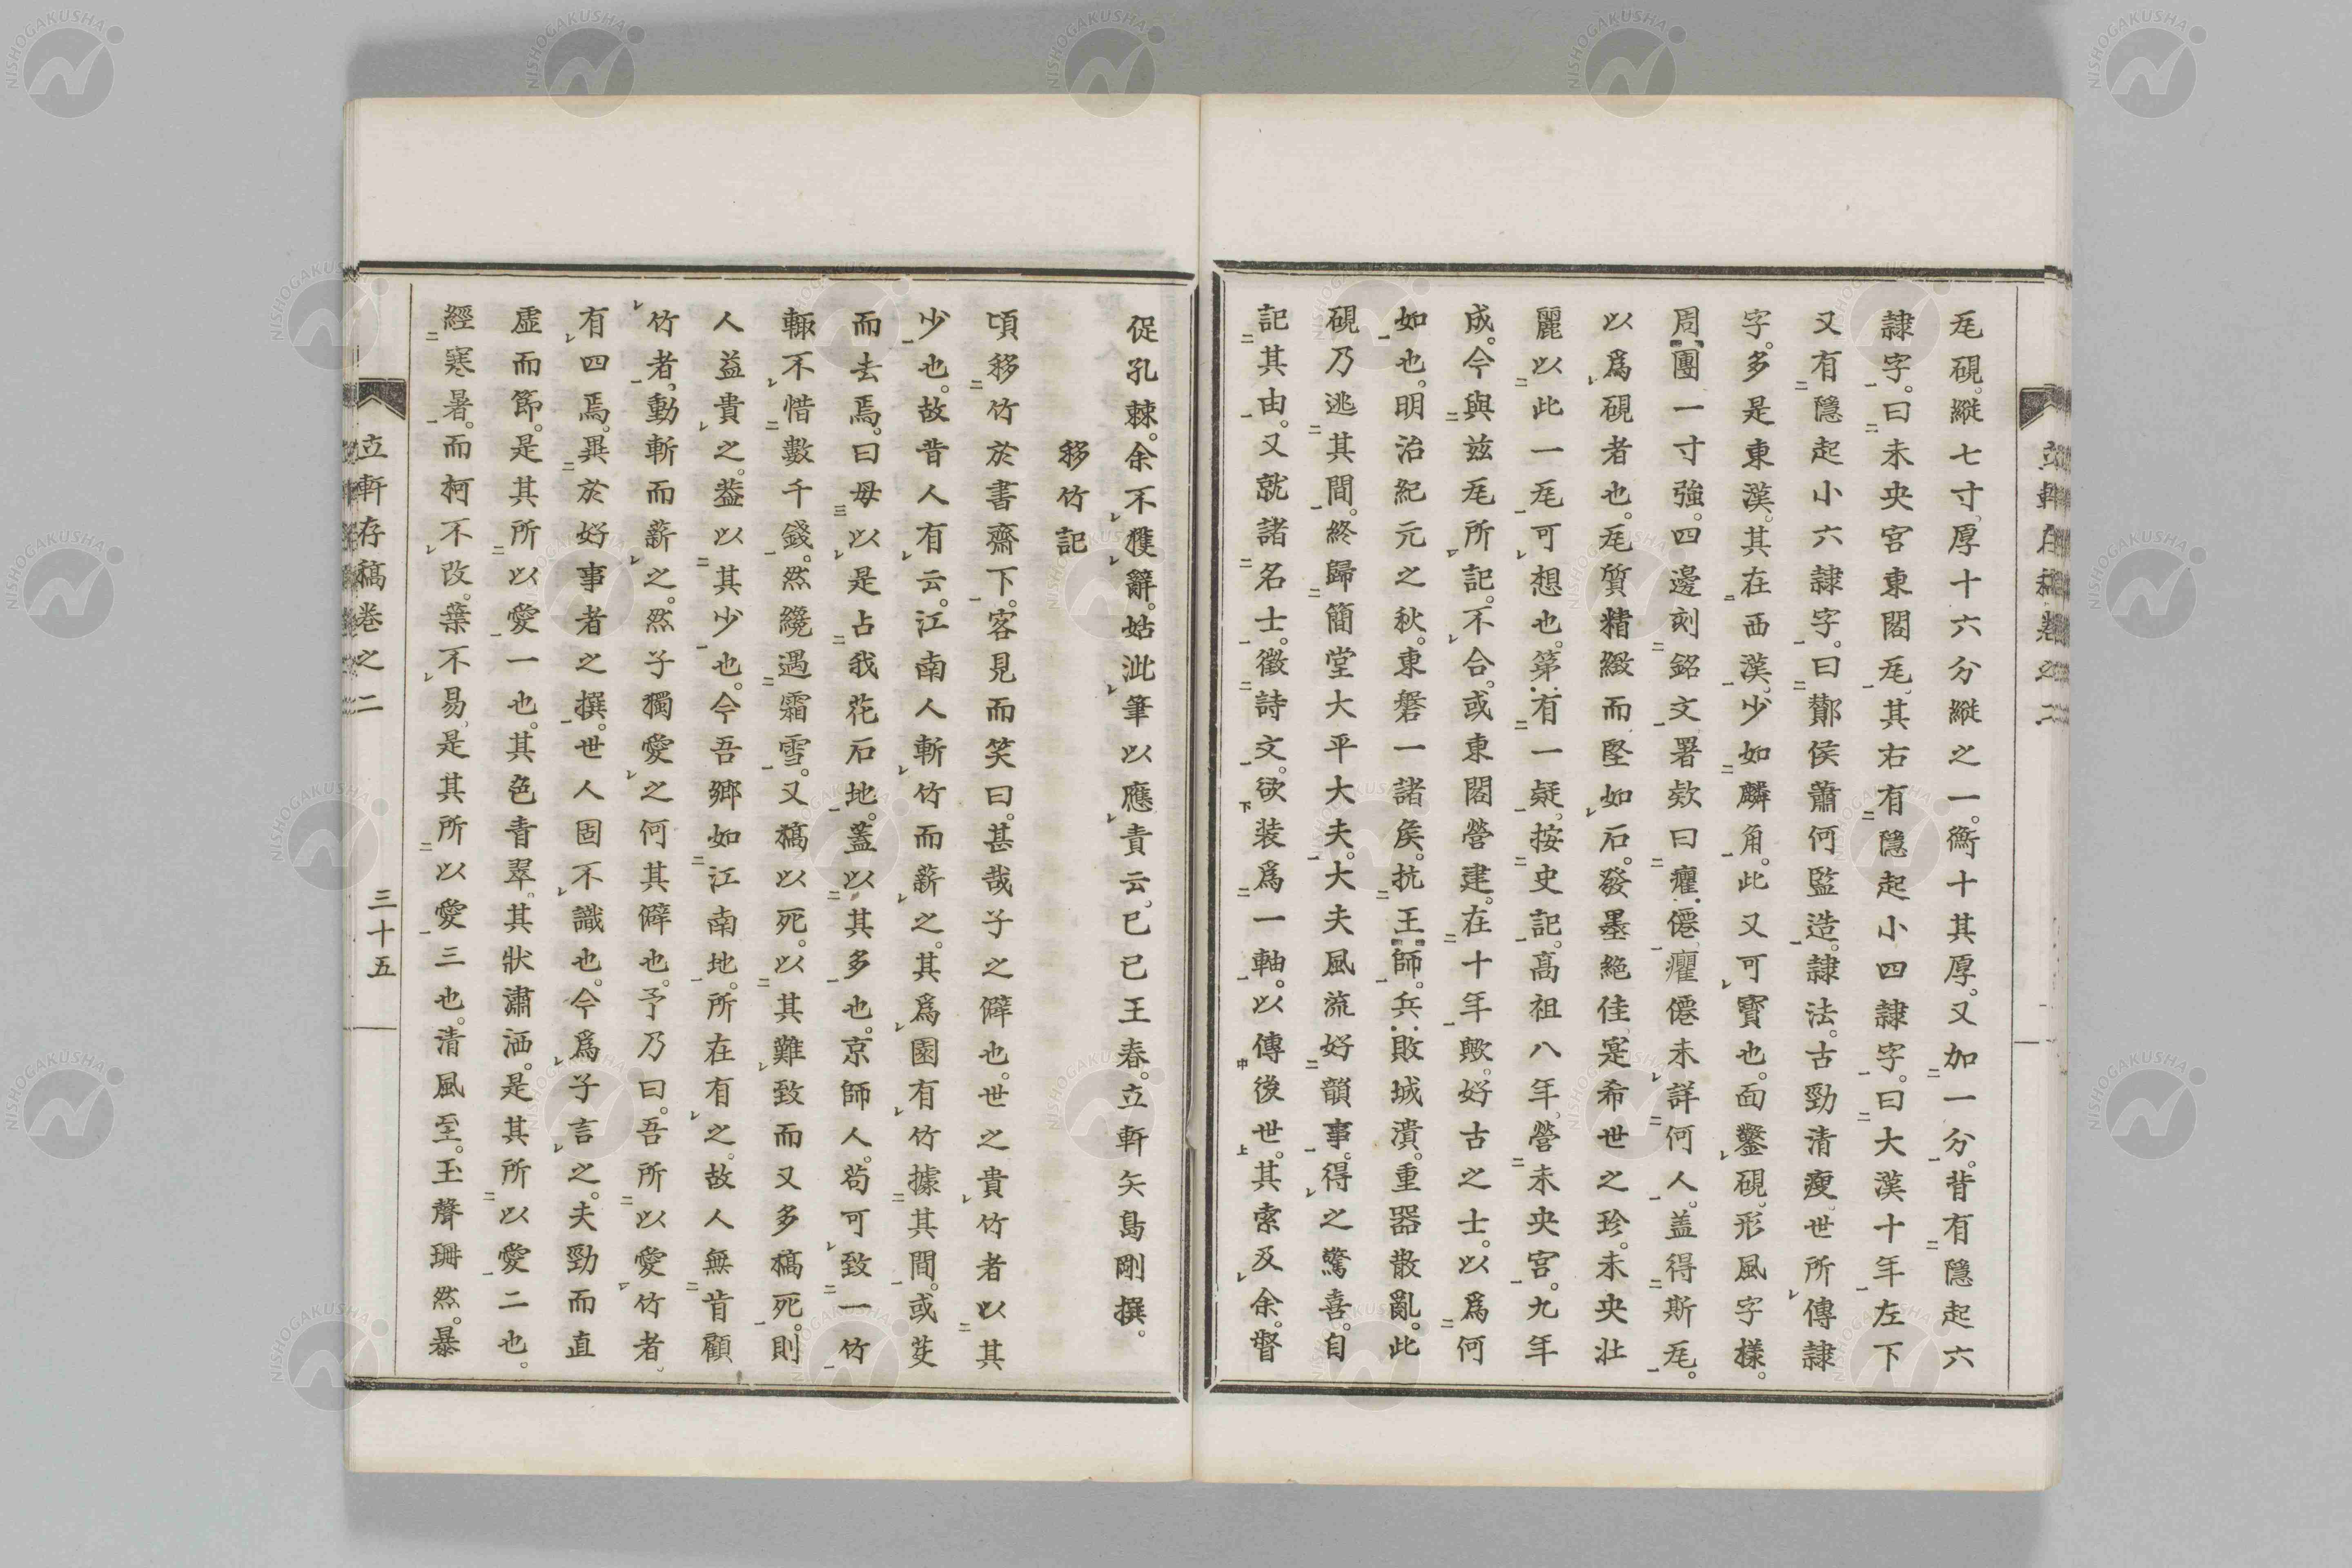 瓦硯。縱七寸、厚十六分縱之一。衡十其厚。又加一分。背有隱起六
隷字。曰未央宮東閣瓦、其右有隱起小四隷字。曰大漢十年左下
又有隱起小六隷字。曰酇侯蕭何監造。隷法。古勁清瘦。世所傳隷
字。多是東漢。其在西漢。少如麟角。此又可寶也。面鑿硯。形風字樣。
周團一寸強。四邊刻銘文署欵曰癯僊。癯僊未詳何人。盖得斯瓦。
以爲硯者也。瓦質精緻而堅如石。發墨絶佳。寔希世之珍。未央壯
麗以此一瓦可想也。第有一疑。按史記。高祖八年、營未央宮。九年
成。今與玆瓦所記。不合。或東閣營建。在十年歟。好古之士。以爲何
如也。明治紀元之秋。東磐一諸矦。抗王師。兵敗城潰。重器散亂。此
硯乃逃其間。終歸簡堂大平大夫。大夫風流好韻事。得之驚喜。自
記其由。又就諸名士。徵詩文。欲装爲一軸。以傳後世。其索及余。督
促孔棘。余不獲辭。姑泚筆以應責云。已已王春。立軒矢島剛撰。
移竹記
頃移竹於書齋下。客見而笑曰。甚哉子之僻也。世之貴竹者以其
少也。故昔人有云。江南人斬竹而薪之。其爲園有竹據其間。或芟
而去焉。曰毋以是占我花石地。蓋以其多也。京師人。苟可致一竹
輙不惜數千錢。然纔遇霜雪。又槁以死。以其難致而又多槁死。則
人益貴之。葢以其少也。今吾鄉如江南地。所在有之。故人無肯顧
竹者、動斬而薪之。然子獨愛之何其僻也。予乃曰。吾所以愛竹者。
有四焉。異於好事者之撰。世人固不識也。今爲子言之。夫勁而直
虛而節。是其所以愛一也。其色青翠。其狀瀟洒。是其所以愛二也。
經寒暑。而柯不改。葉不易、是其所以愛三也。清風至。玉聲珊然。暴
立軒存稿卷之二
三十五